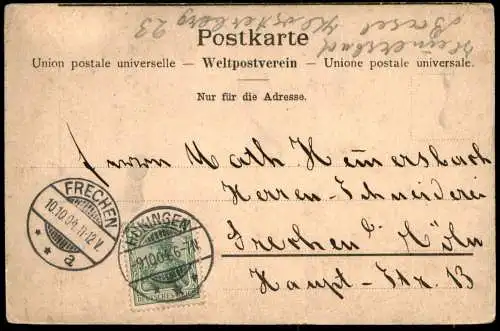 Heimersbach
Basel
Klosterberg 23
Postkarte
Union postale universelle — Weltpostverein — Unione postale universale.
Nur für die Adresse.
Herrn Math Heimersbach
Herren-Schneiderei
Frechen b/ Köln
Haupt-Str. 13
FRECHEN
10.10.04. 11-12 V.
* * a
HÖNINGEN
9.10.04. 6-7N.